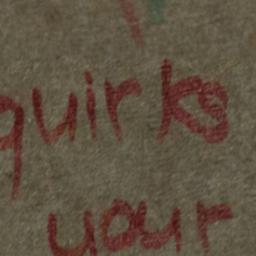 quirks
your